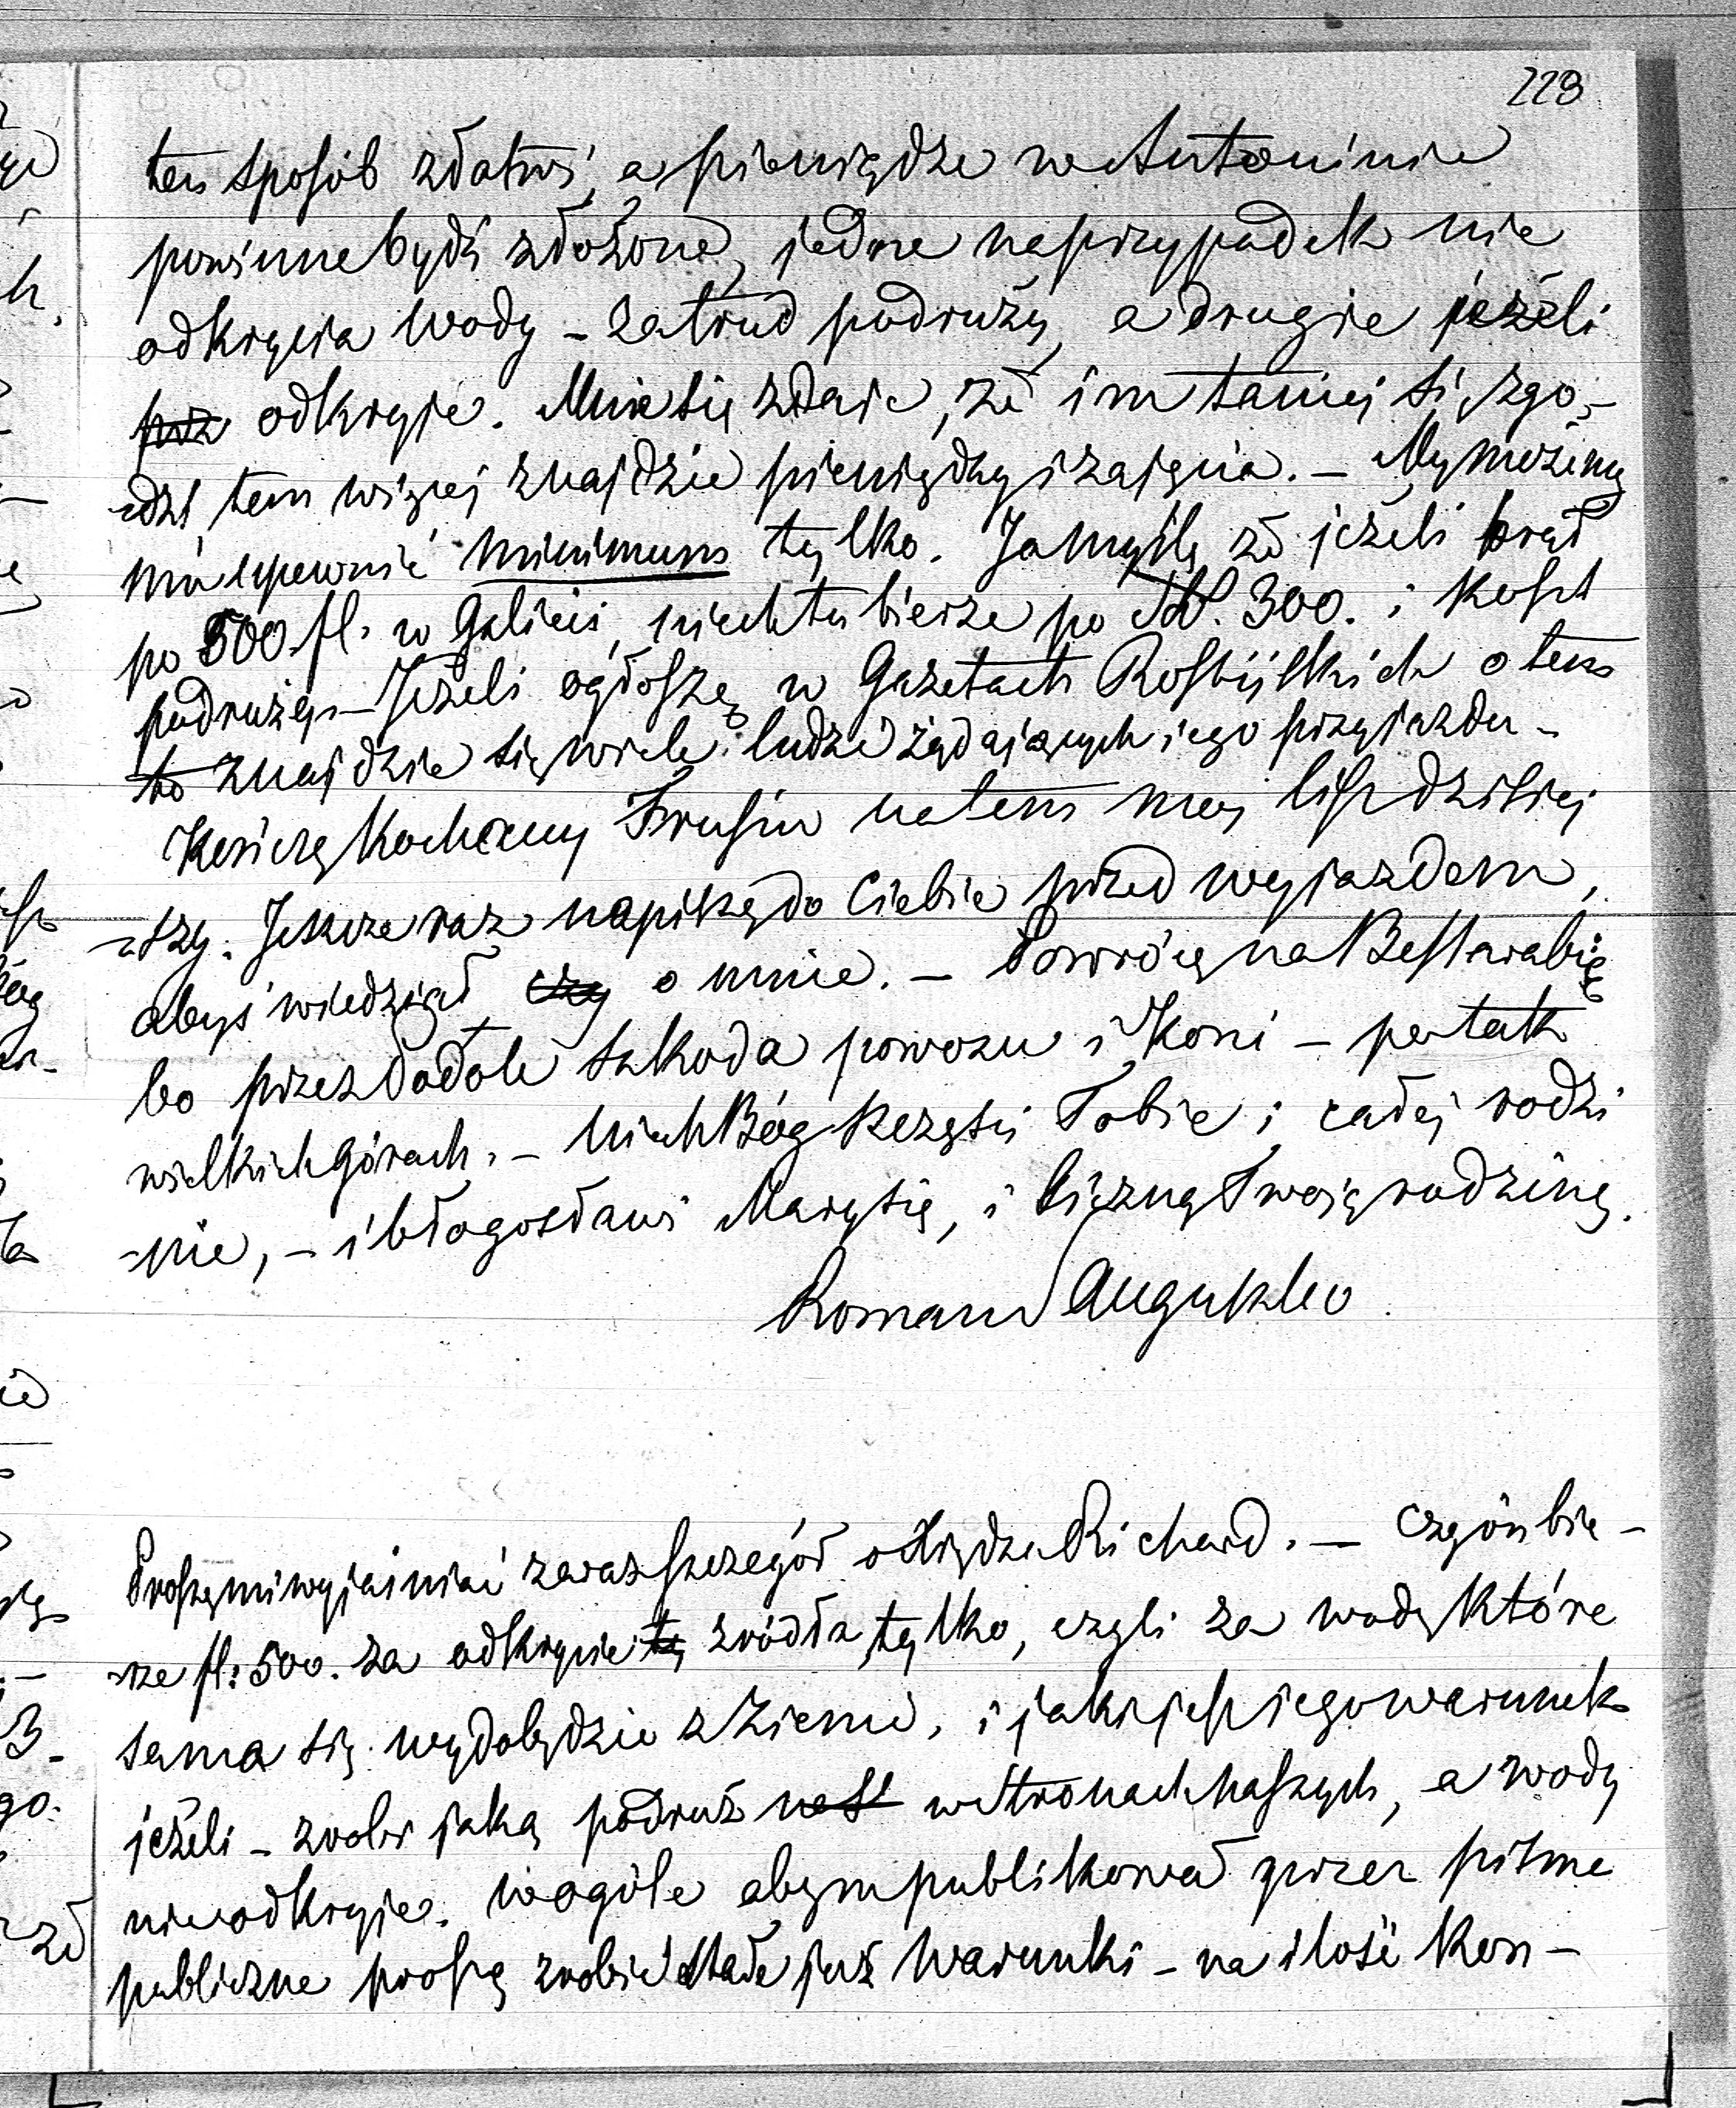 228
ten sposób zdatwi, a pieniądze w Antoninie
powinne bydź złożone, jedne naprzypadek nie
odkrycia wody – za trud podruży, a drugie jeżeli
odkryje. Mnie się zdaje, że im taniej się zgo-
-dzi, tem więcej znajdzie pieniędzy i zajęcia. – My możemy
mu upewnić minimum tylko. Ja myślę że jeżeli brał
po 500 fl. w Galicii, niech tu bierze po 300. i koszt
podruży. – Jeżeli ogłoszę w Gazetach Rossyiskich o tem
to znajdzie się wiele ludzi żądających jego przyjazdu –
Kończę kochany Frusiu na tem mój list dzisiej
-szy. Jeszcze raz napiszę do Ciebie przed wyjazdem,
abyś wiedział czy o mnie. – Powrócę na Bessarabię
bo przez Podole szkoda powozu i koni – po tak
wielkich górach. – Niech Bóg szczęści Tobie i całej rodzi
-nie, – i błogosławi Marysię, i liczną Twoję rodzinę.
Roman Sanguszko
Proszę mi wyjaśniać zaraz szczegół o Xiędzu Richard. – Czy ón bie-
-rze fl: 500. za odkrycie zródła tylko, czyli za wodę które
sama się wydobędzie z ziemi, i jaki jest jego warunek
jeżeli – zrobi jaką podruż w stronach naszych, a wody
nie odkryje. Wogóle abym publikował przez pisma
publiczne proszę zrobić stałe już warunki – na ilość kon-